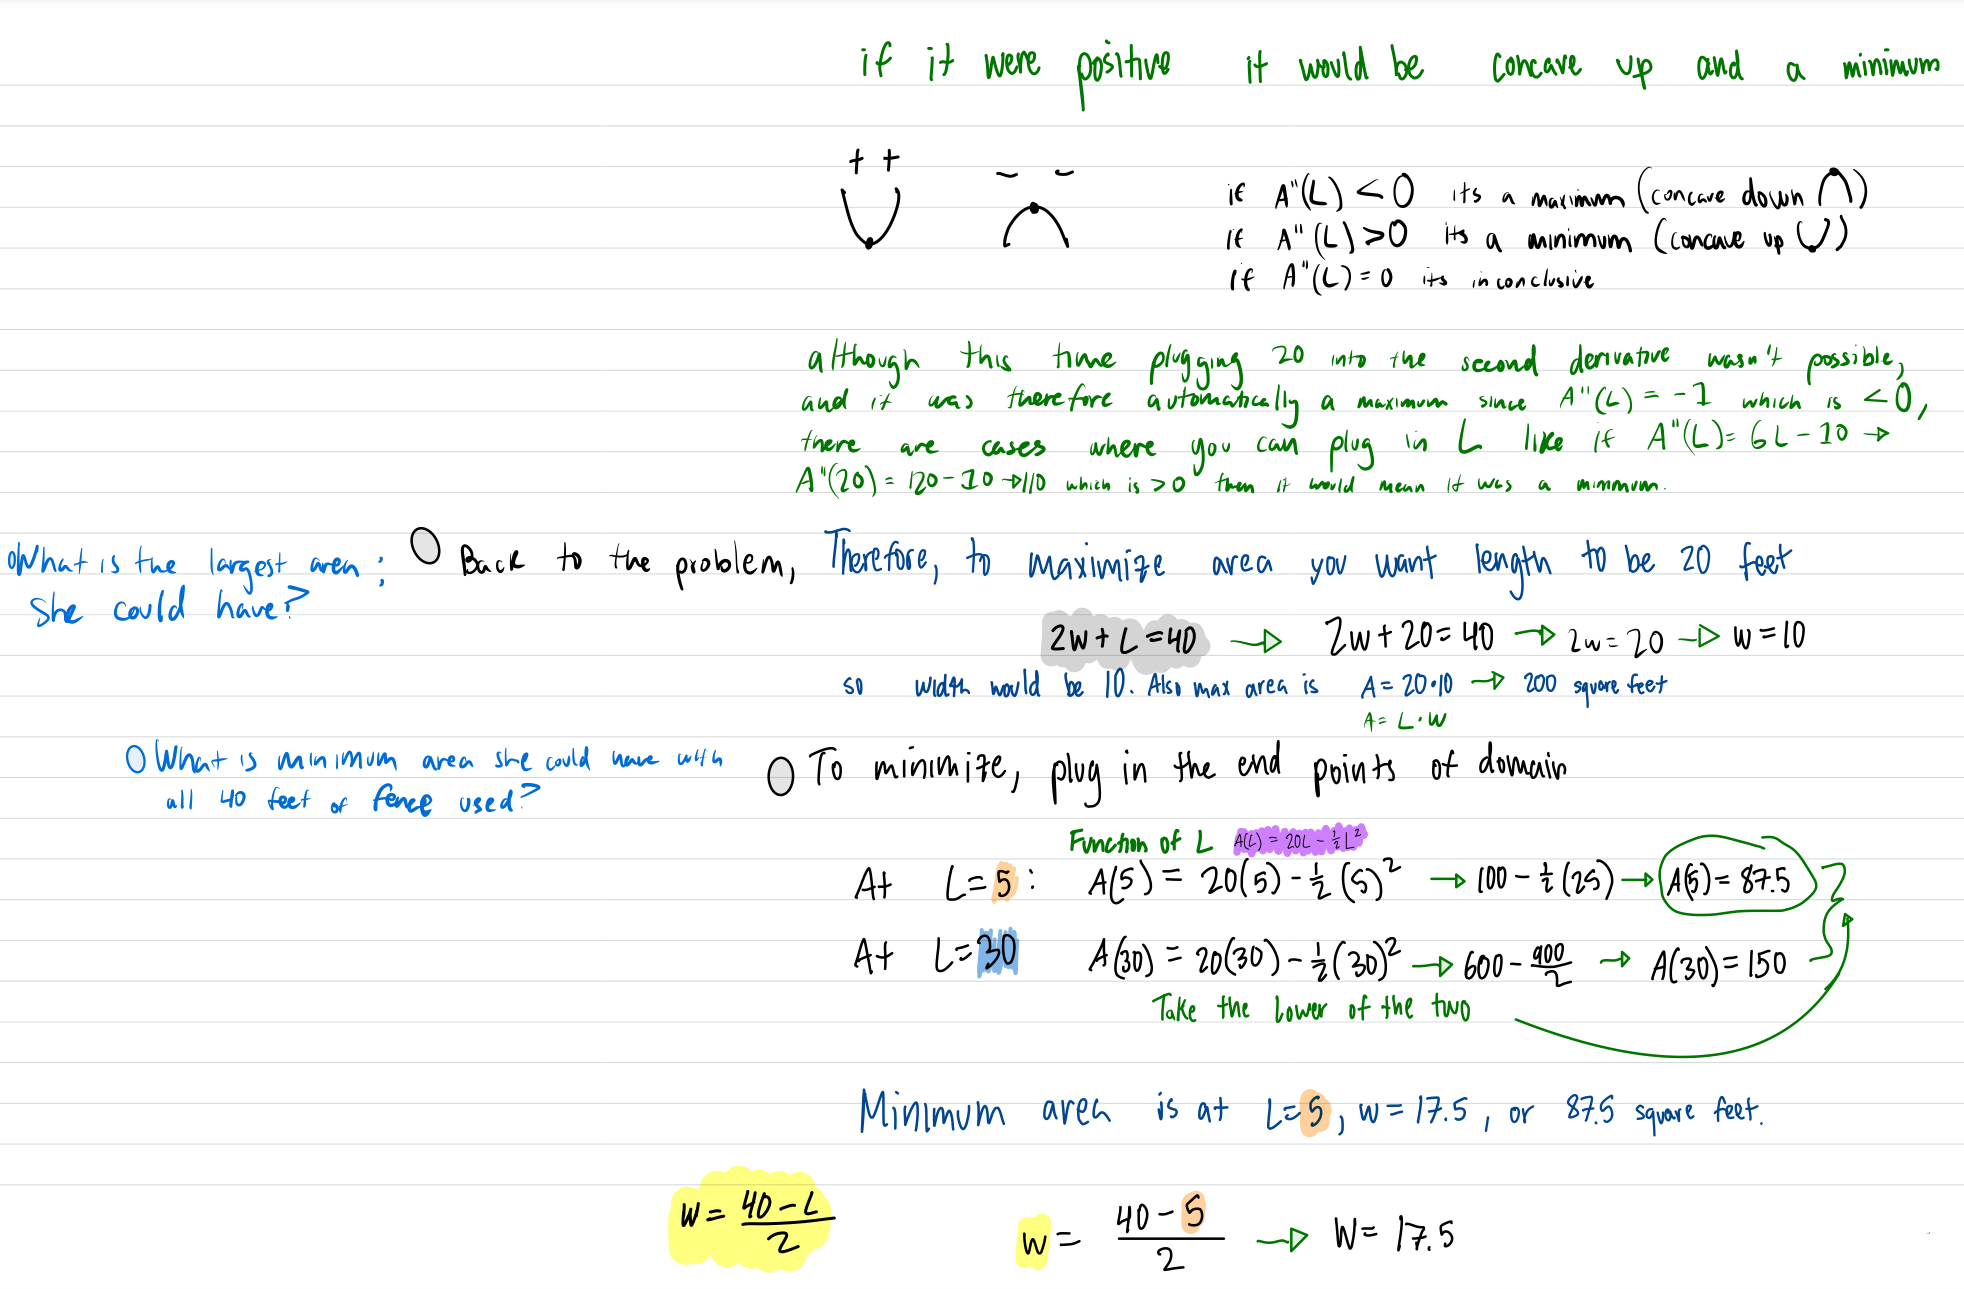 if it were positive it would be concave up and a minimum
+ +
- -
if A"(L) < 0 its a maximum (concave down ∩)
if A"(L) > 0 its a minimum (concave up ∪)
if A"(L) = 0 its inconclusive
although this time plugging 20 into the second derivative wasn't possible,
and it was therefore automatically a maximum since A"(L) = -1 which is < 0,
there are cases where you can plug in L like if A"(L) = 6L - 10 →
A"(20) = 120 - 10 → 110 which is > 0 then it would mean it was a minimum.
What is the largest area she could have?
Back to the problem, Therefore, to maximize area you want length to be 20 feet
2w + L = 40 → 2w + 20 = 40 → 2w = 20 → w = 10
so width would be 10. Also max area is A = 20·10 → 200 square feet
A = L·W
What is minimum area she could have with
all 40 feet of fence used?
To minimize, plug in the end points of domain
Function of L A(L) = 20L - ½L²
At L = 5: A(5) = 20(5) - ½(5)² → 100 - ½(25) → A(5) = 87.5
At L = 30 A(30) = 20(30) - ½(30)² → 600 - 900/2 → A(30) = 150
Take the lower of the two
Minimum area is at L = 5, w = 17.5, or 87.5 square feet.
W = (40 - L)/2
w = (40 - 5)/2 → W = 17.5